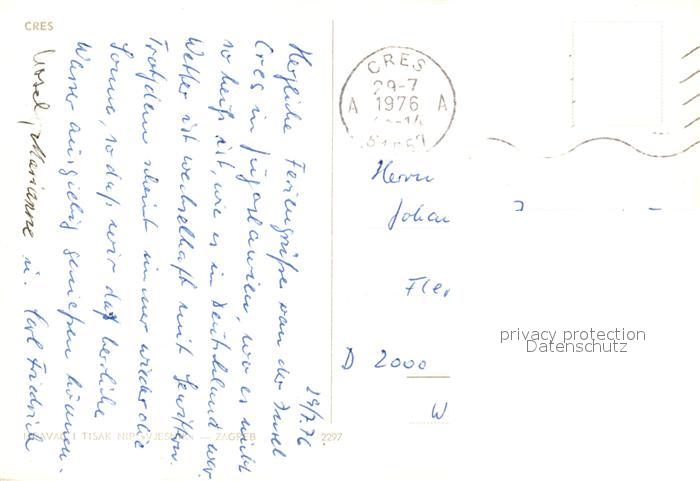 CRES
29/7.76
Herzliche Feriengrüße von der Insel
Cres in Jugoslawien, wo es nicht
so heiß ist, wie es in Deutschland war.
Wetter ist wechselhaft mit Gewittern.
Trotzdem scheint immer wieder die
Sonne, so daß wir das herrliche
Wasser ausgiebig genießen können.
Marianne u. Karl Friedrich
CRES
29-7
1976
A A
Herrn
Johan
D 2000
W
privacy protection
Datenschutz
TISAK
ZAGREB
2297